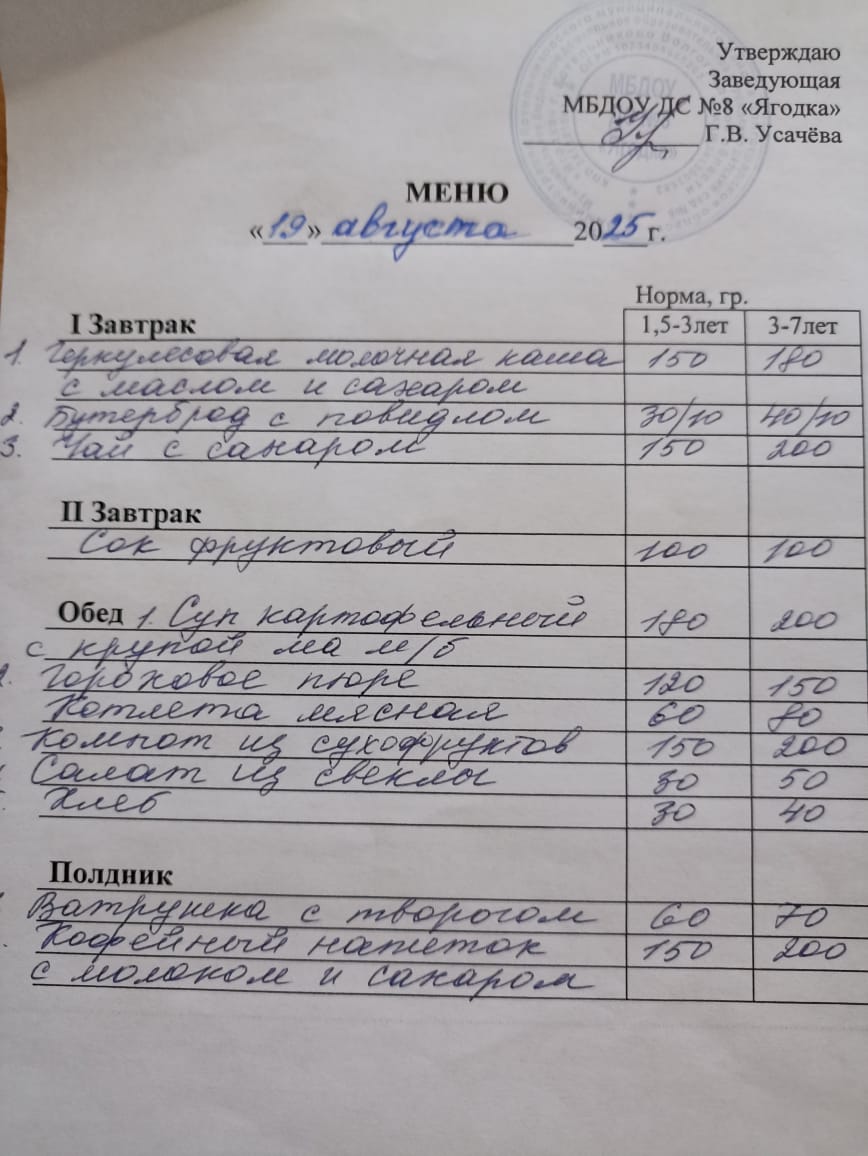 Утверждаю
Заведующая
МБДОУ ДС №8 «Ягодка»
Г.В. Усачёва
МБДОУ
МЕНЮ
«19» августа 2025 г.
Норма, гр.
I Завтрак 1,5-3лет 3-7лет
1. Геркулесовая молочная каша 150 180
с маслом и сахаром
2. Бутерброд с повидлом 30/10 40/10
3. Чай с сахаром 150 200
II Завтрак
Сок фруктовый 100 100
Обед 1. Суп картофельный 180 200
с крупой на м/б
2. Гороховое пюре 120 150
Котлета мясная 60 80
Компот из сухофруктов 150 200
Салат из свеклы 30 50
Хлеб 30 40
Полдник
Ватрушка с творогом 60 70
Кофейный напиток 150 200
с молоком и сахаром